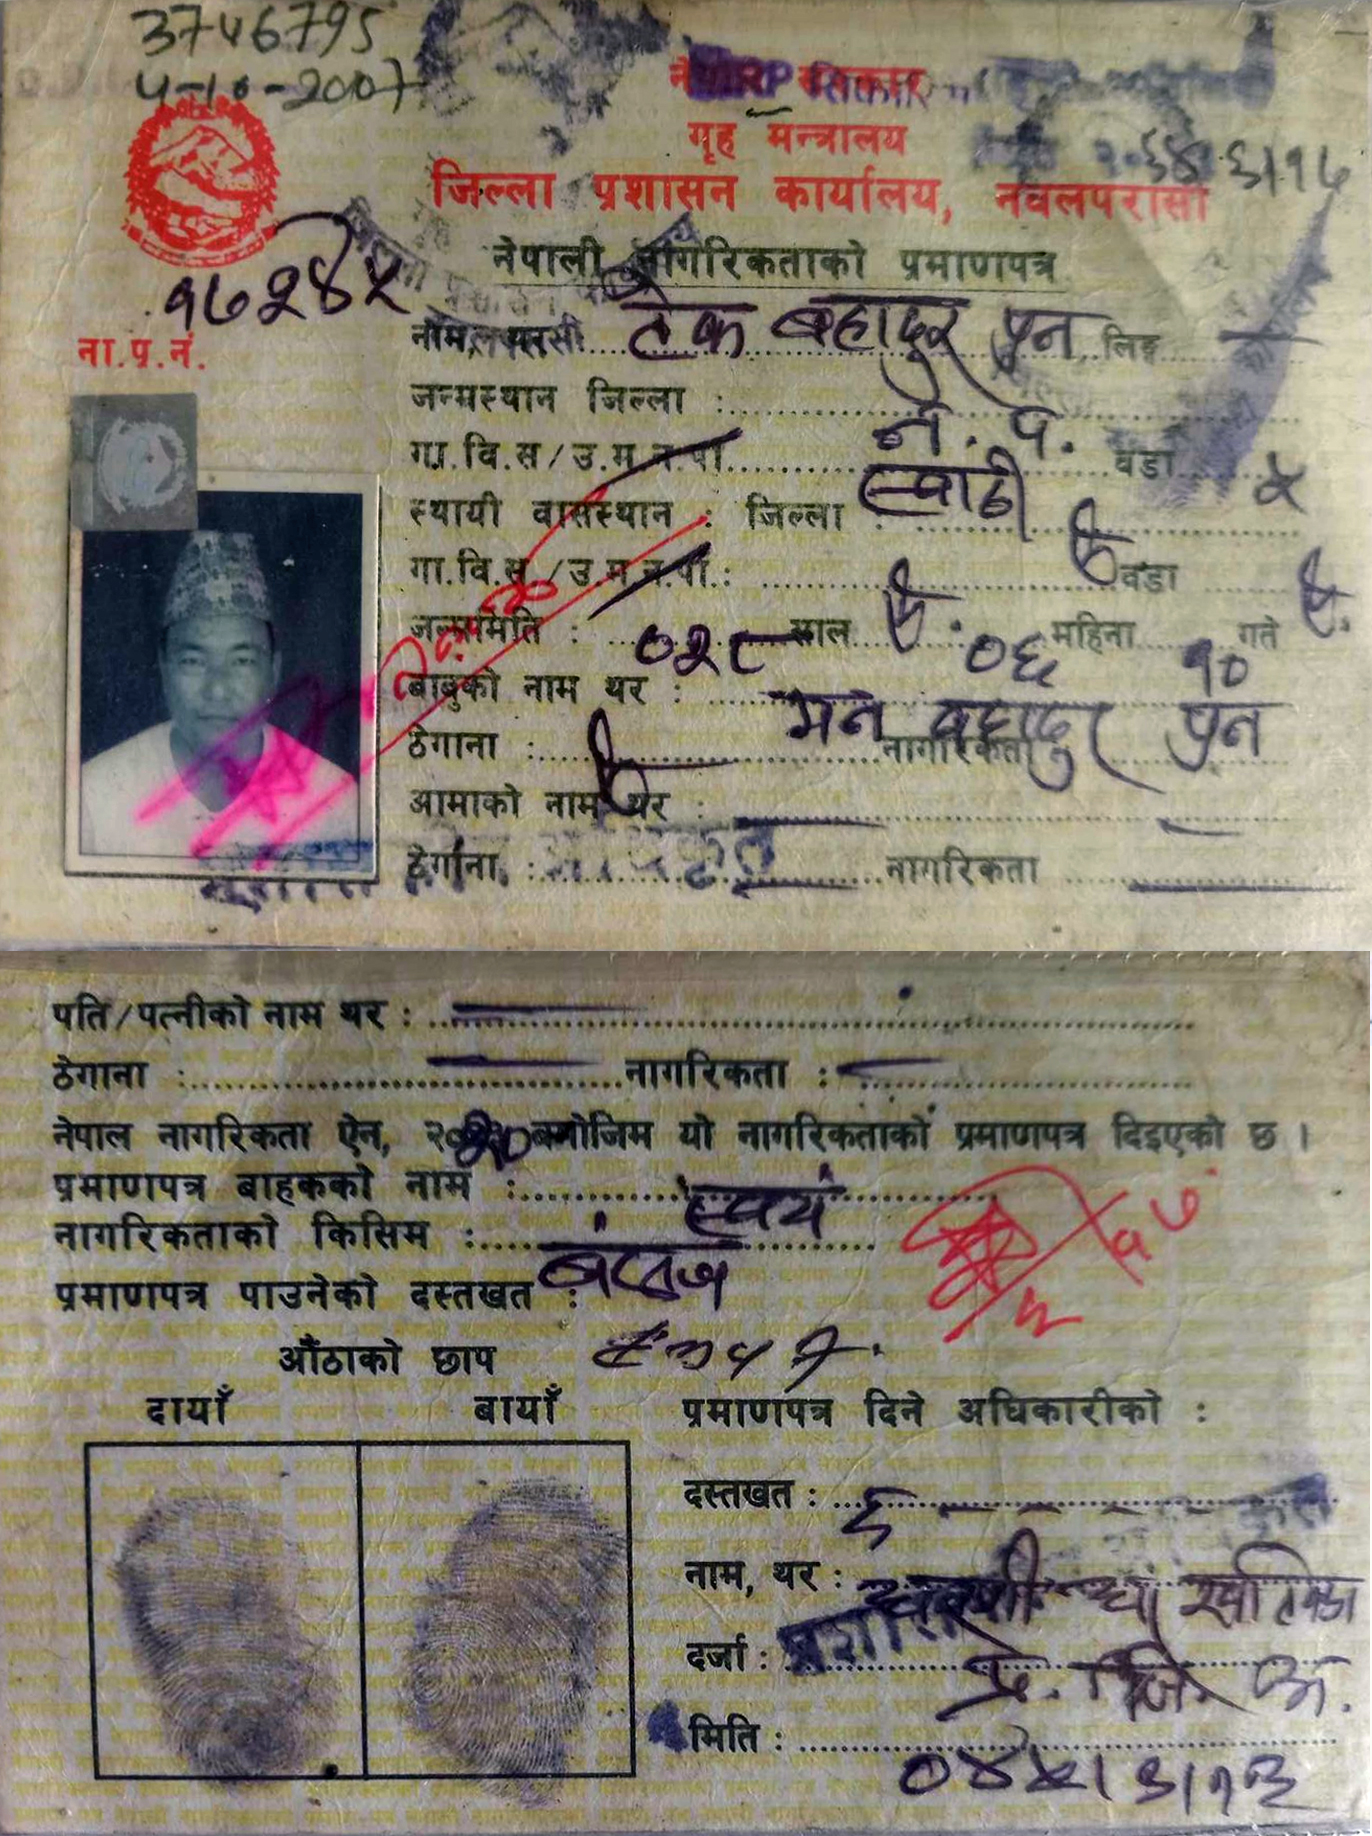 3746795
4-10-2007
नेपाल सरकार
गृह मन्त्रालय
जिल्ला प्रशासन कार्यालय, नवलपरासी
नेपाली नागरिकताको प्रमाणपत्र
१७२४५
ना.प्र.नं.
नाम, थर टेक बहादुर पुन लिङ्ग
जन्मस्थान जिल्ला : न. प.
गा.वि.स/उ.म.न.पा. वडा ५
स्थायी वासस्थान : जिल्ला :
गा.वि.स/उ.म.न.पा. : वडा
जन्ममिति : ०२८ साल ०६ महिना १० गते
बाबुको नाम थर : मन बहादुर पुन
ठेगाना : नागरिकता
आमाको नाम थर :
ठेगाना : नागरिकता
पति/पत्नीको नाम थर :
ठेगाना : नागरिकता :
नेपाल नागरिकता ऐन, २०२० बमोजिम यो नागरिकताको प्रमाणपत्र दिइएको छ ।
प्रमाणपत्र बाहकको नाम : स्वयं
नागरिकताको किसिम : बंशज
प्रमाणपत्र पाउनेको दस्तखत :
औंठाको छाप
दायाँ बायाँ
प्रमाणपत्र दिने अधिकारीको :
दस्तखत :
नाम, थर :
दर्जा : प्र. जि. अ.
मिति : ०४५।३।१३